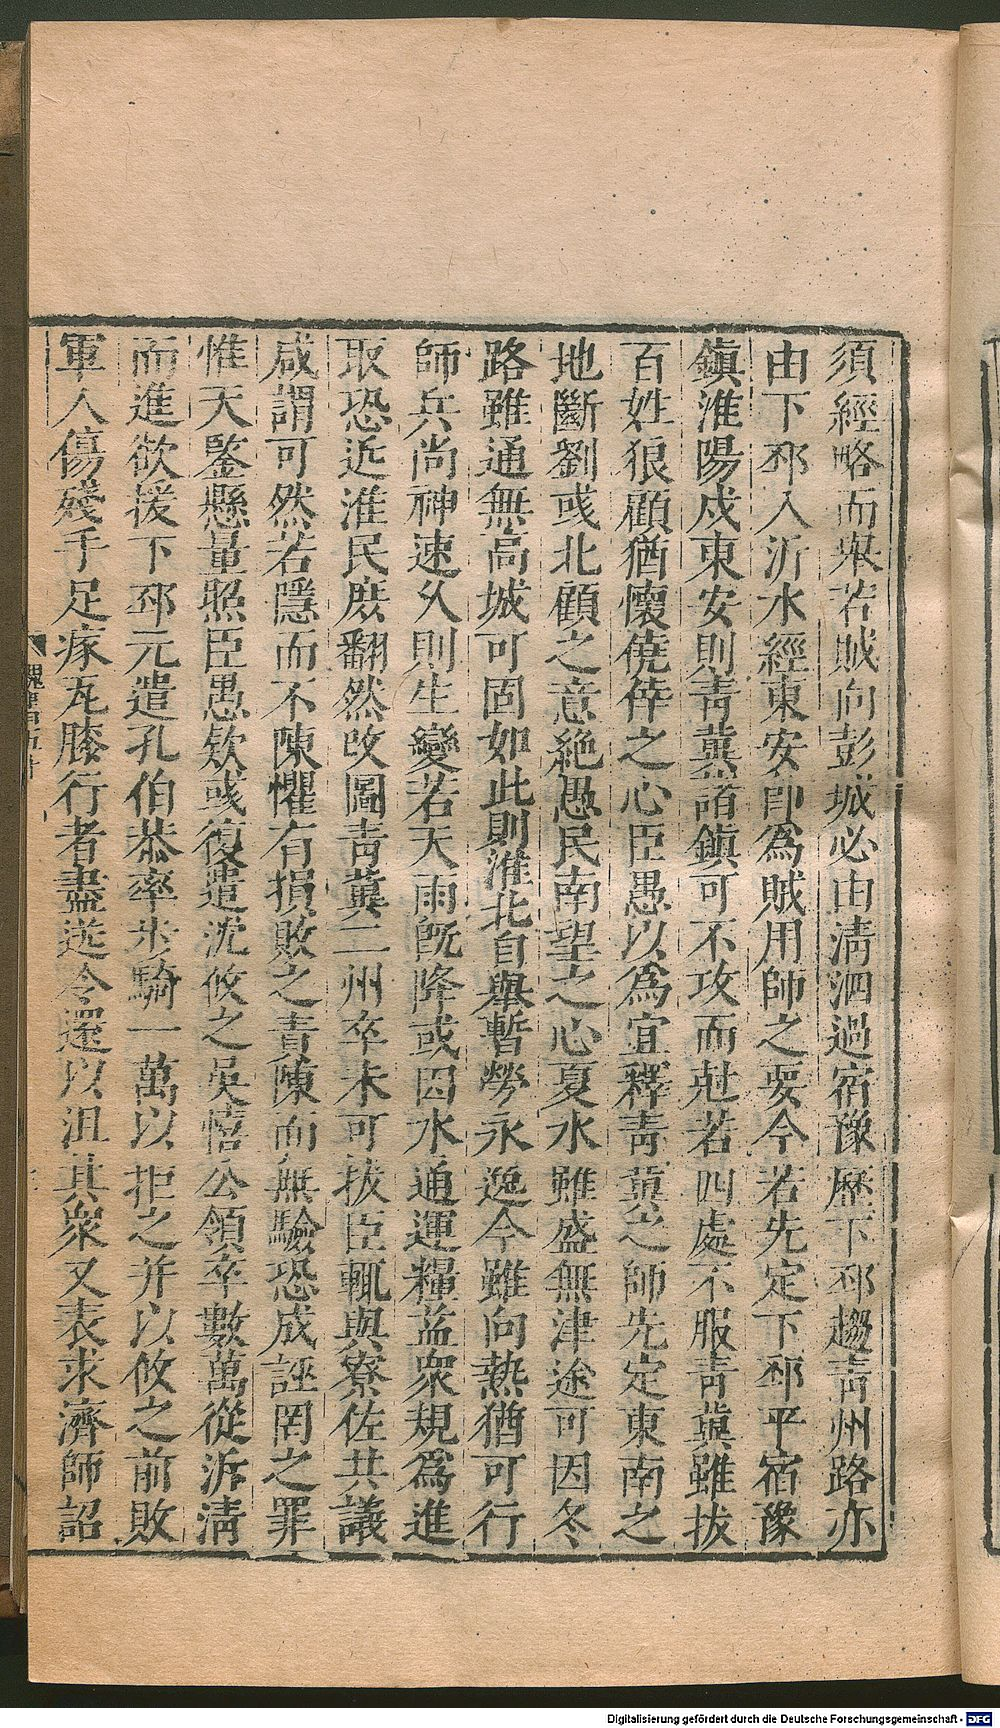 須經略而舉若賊向彭城必由清泗過宿豫歷下邳趨青州路亦
由下邳入沂水經東安即為賊用師之要今若先定下邳平宿豫
鎮淮陽戍東安則青冀諸鎮可不攻而尅若四處不服青冀雖拔
百姓狼顧猶懷僥倖之心臣愚以為宜釋青冀之師先定東南之
地斷劉彧北顧之意絶愚民南望之心夏水雖盛無津途可因冬
路雖通無高城可固如此則淮北自舉暫勞永逸今雖向熱猶可行
師兵尚神速久則生變若天雨旣降或因水通運糧益衆規為進
取恐近淮民庶翻然改圖青冀二州卒未可拔臣輒與寮佐共議
咸謂可然若隱而不陳懼有損敗之責陳而無驗恐成誣罔之罪
惟天鑒懸量照臣愚欵彧復遣沈攸之吳憘公領卒數萬從沂清
而進欲援下邳元遣孔伯恭率步騎一萬以拒之并以攸之前敗
軍人傷殘手足瘃瓦膝行者盡送令還以沮其衆又表求濟師詔
魏書五十
Digitalisierung gefördert durch die Deutsche Forschungsgemeinschaft - DFG